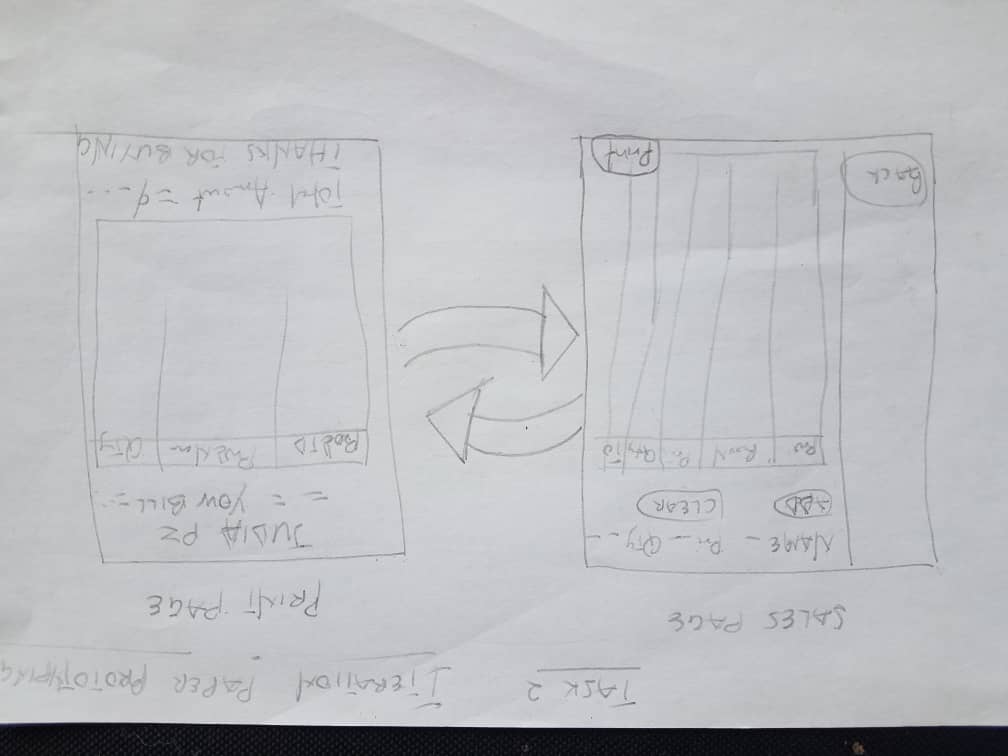 TASK 2 ITERATION PAPER PROTOTYPING
SALES PAGE
NAME - Pri _ Qty - -
ADD CLEAR
Pro Pri Qty To
Back
Print
PRINT PAGE
JUDIA PZ
= = YOUR BILL = ...
Prod ID Prod Nam Qty
Total Amout = ₵ - ...
THANKS FOR BUYING